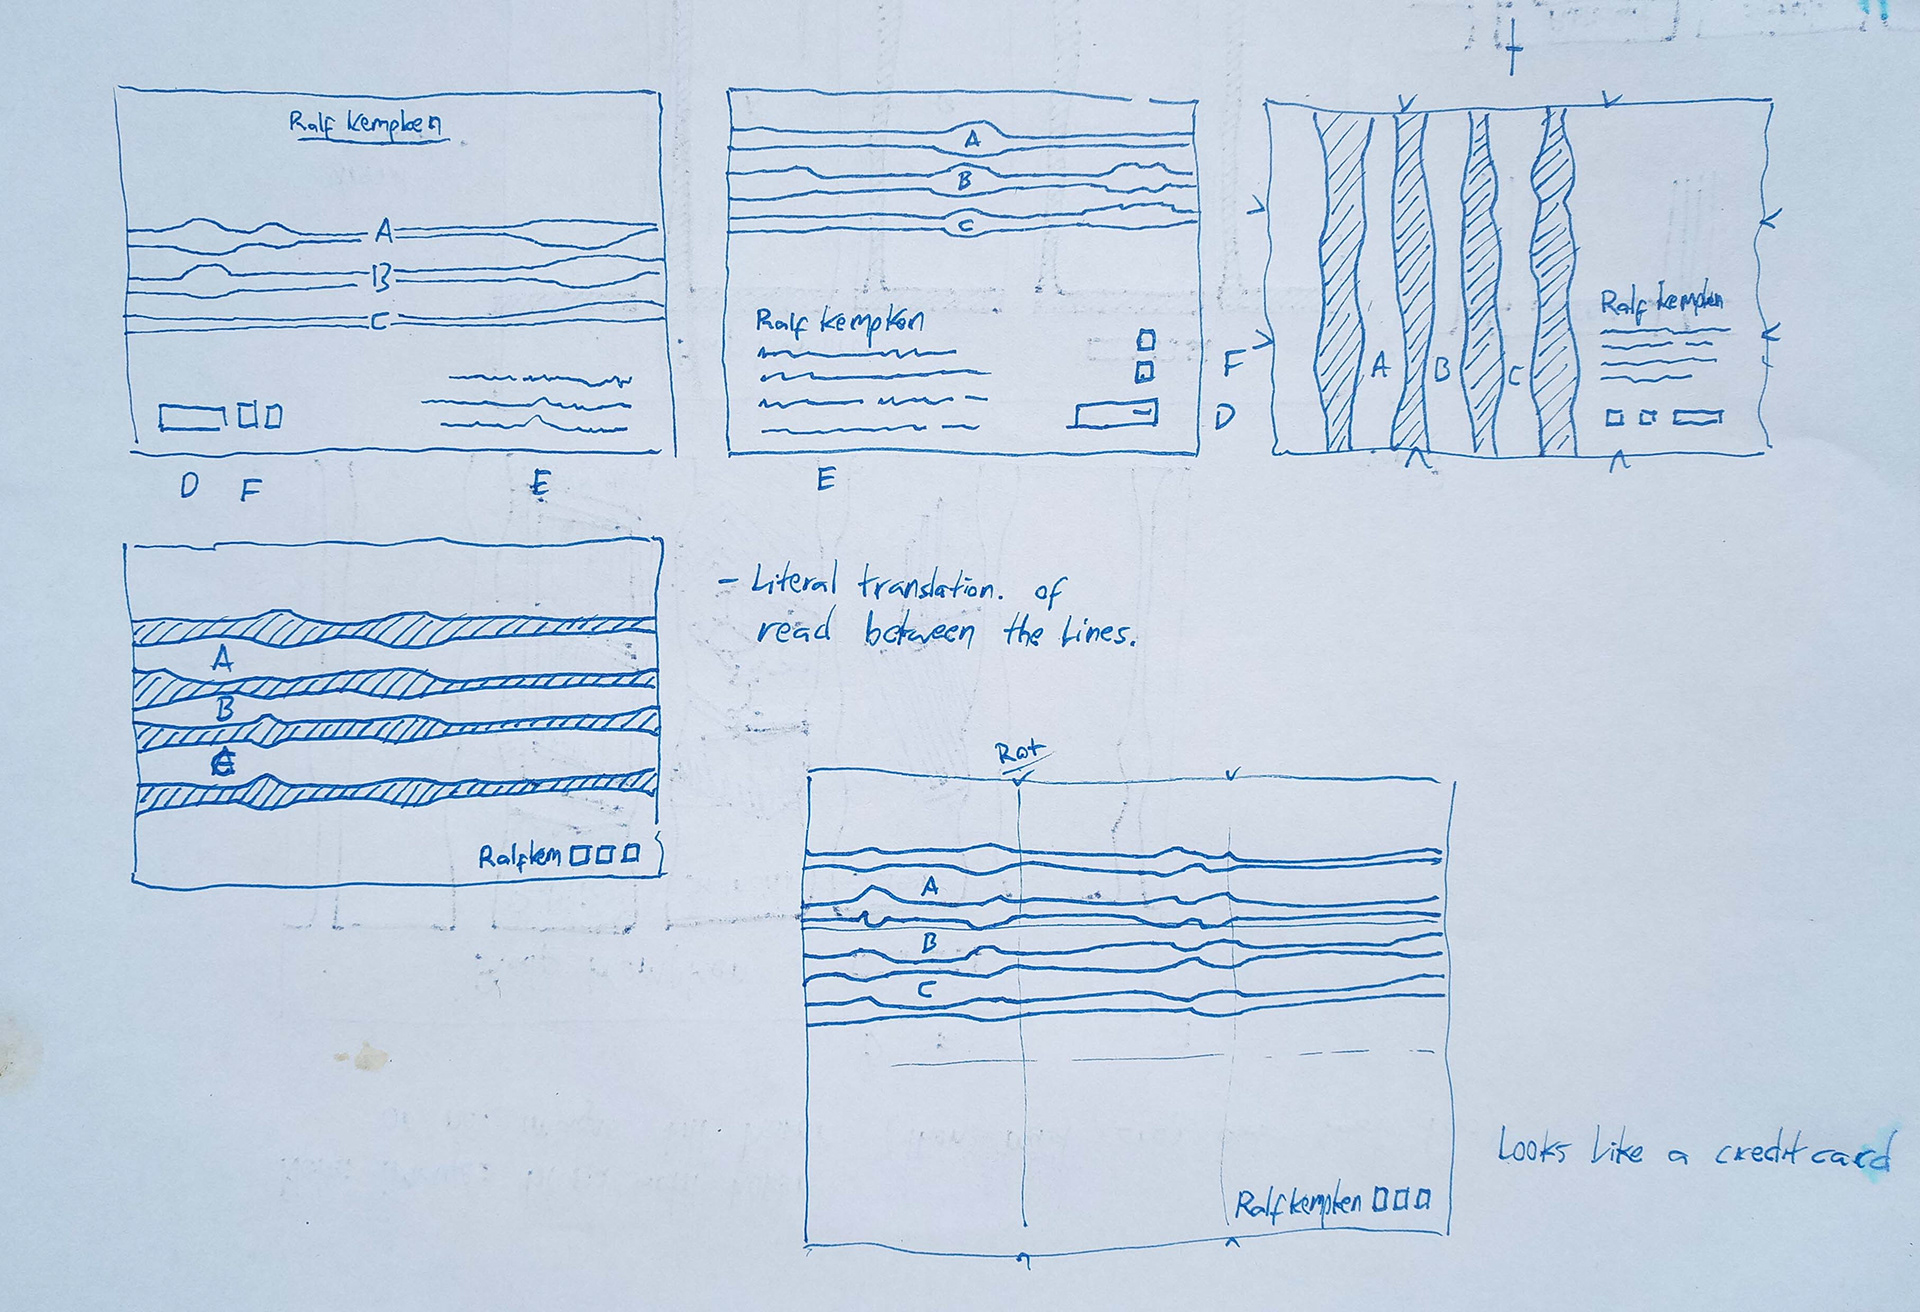 Ralf Kempken
A
B
C
D F E
A
B
C
Ralf Kempken
F
D
E
A B C
Ralf Kempken
A
B
C
Ralf Kem
- Literal translation. of
read between the lines.
Rot
A
B
C
Ralf Kempken
Looks like a credit card